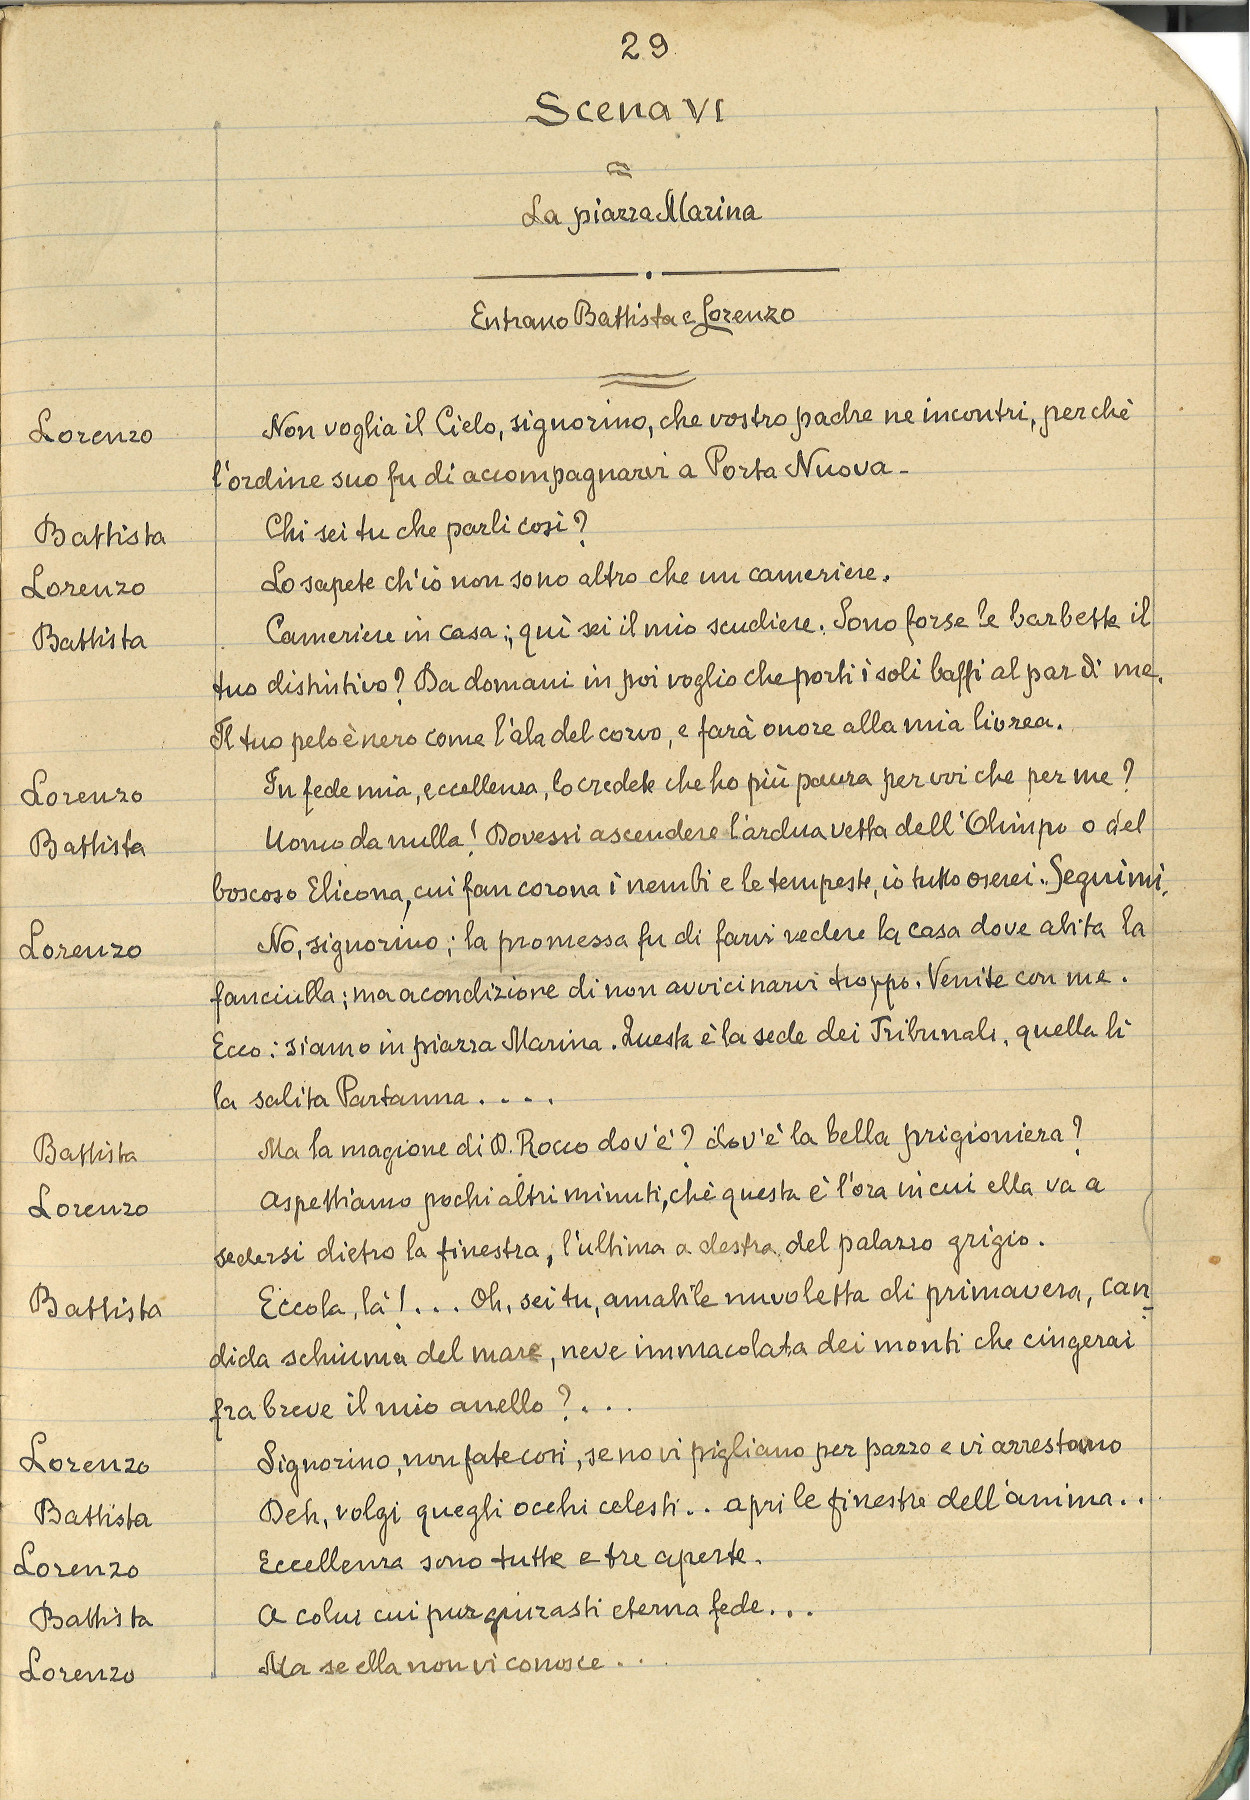 29
Scena VI
La piazza Marina
Entrano Battista e Lorenzo
Lorenzo Non voglia il Cielo, signorino, che vostro padre ne incontri, perchè
l'ordine suo fu di accompagnarvi a Porta Nuova -
Battista Chi sei tu che parli così?
Lorenzo Lo sapete ch'io non sono altro che un cameriere.
Battista Cameriere in casa; quì sei il mio scudiere. Sono forse le barbette il
tuo distintivo? Da domani in poi voglio che porti i soli baffi al par di me.
Il tuo pelo è nero come l'ala del corvo, e farà onore alla mia livrea.
Lorenzo In fede mia, eccellenza, lo credete che ho più paura per voi che per me?
Battista Uomo da nulla! Dovessi ascendere l'ardua vetta dell'Olimpo o del
boscoso Elicona, cui fan corona i nembi e le tempeste, io tutto oserei. Seguimi.
Lorenzo No, signorino; la promessa fu di farvi vedere la casa dove abita la
fanciulla; ma a condizione di non avvicinarvi troppo. Venite con me.
Ecco: siamo in piazza Marina. Questa è la sede dei Tribunali, quella lì
la salita Partanna....
Battista Ma la magione di D. Rocco dov'è? dov'è la bella prigioniera?
Lorenzo Aspettiamo pochi altri minuti, chè questa è l'ora in cui ella va a
sedersi dietro la finestra, l'ultima a destra del palazzo grigio.
Battista Eccola, là!... Oh, sei tu, amabile nuvoletta di primavera, can-
dida schiuma del mare, neve immacolata dei monti che cingerai
fra breve il mio anello?...
Lorenzo Signorino, non fate così, se no vi pigliano per pazzo e vi arrestano
Battista Deh, volgi quegli occhi celesti.. apri le finestre dell'anima..
Lorenzo Eccellenza sono tutte e tre aperte.
Battista A colui cui pur giurasti eterna fede...
Lorenzo Ma se ella non vi conosce...